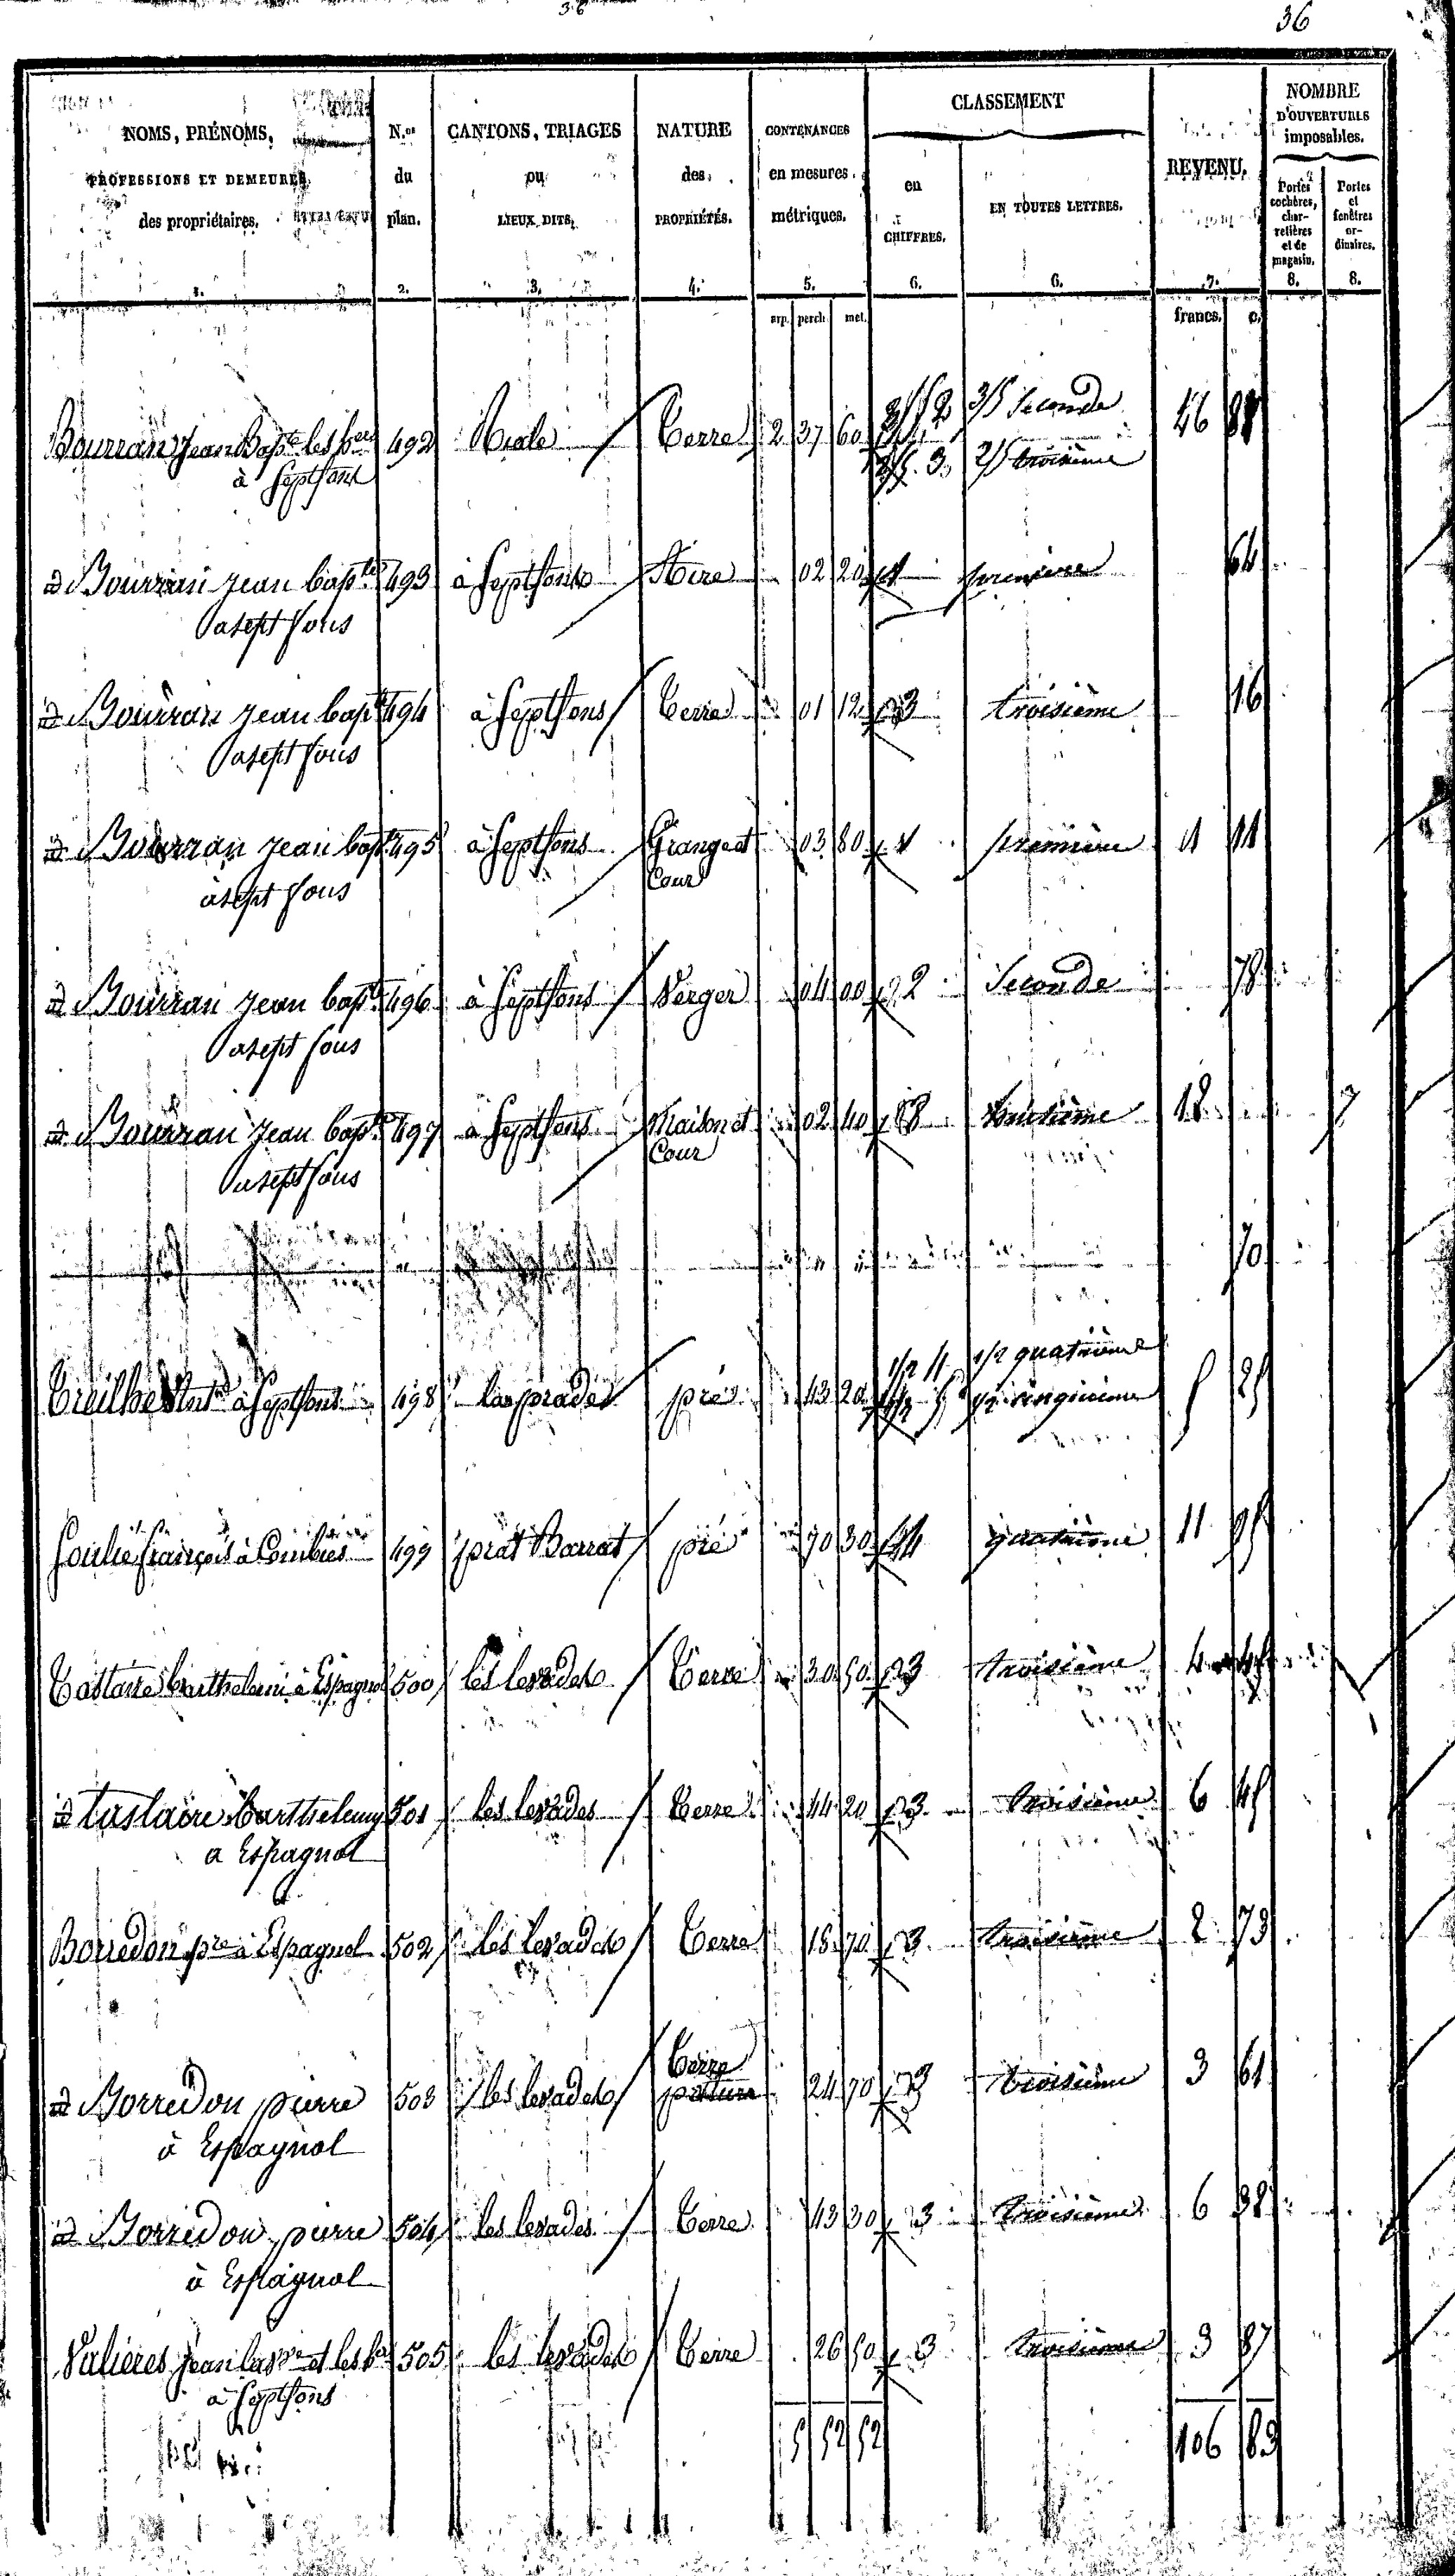 36
36
NOMS, PRÉNOMS,
PROFESSIONS ET DEMEURES
des propriétaires.
1.
N.os
du
plan.
2.
CANTONS, TRIAGES
ou
LIEUX DITS.
3.
NATURE
des
PROPRIÉTÉS.
4.
CONTENANCES
en mesures
métriques.
5.
arp. perch. met.
CLASSEMENT
en
CHIFFRES.
6.
EN TOUTES LETTRES.
6.
REVENU.
7.
francs. c.
NOMBRE
D'OUVERTURES
imposables.
Portes
cochères,
char-
retières
et de
magasin.
8.
Portes
et
fenêtres
or-
dinaires.
8.
Bourran Jean Bapte les hers 492 Terre 2 37 60 3/5 2 3/5 Seconde 46
à Septfons 2/5. 3. 2/5 troisième
Bourran Jean bapte 493 à Septfons Aire 02 20 1 première 64
a sept fons
Bourran Jean bapte 494 à Septfons Terre 01 12 3 troisième 16
a sept fons
Bourran Jean bapte 495 à Septfons Grange et 03 80 1 première 11
à sept fons Cour
Bourran Jean bapte 496 à Septfons Verger 04 00 2 Seconde 78
a sept fons
Bourran Jean bapte 497 à Septfons Maison et 02 40 8 huitième 18 7
a sept fons Cour
70
à Septfons 498 las prades pré 43 20 1/2 4 1/2 quatrième 5 25
1/2 5 1/2 cinquième
Soulié françois à Combies 499 prat Barrat pré 70 30 4 quatrième 11 95
Castaire barthelemi à Espagnol 500 les levades Terre 30 50 3 troisième 4
Tastaire Barthelemy 501 les levades Terre 44 20 3 troisième 6 45
a Espagnol
Borredon pre à Espagnol 502 les levades Terre 18 70 3 troisième 2 73
Borredon pierre 503 les levades Terre 24 70 3 troisième 3 61
à Espagnol pature
Borredon pierre 504 les levades Terre 43 30 3 troisième 6 32
à Espagnol
Valieres Jean la vve et les hers 505 les levades Terre 26 50 3 troisième 3 87
à Septfons
5 52 52 106 83